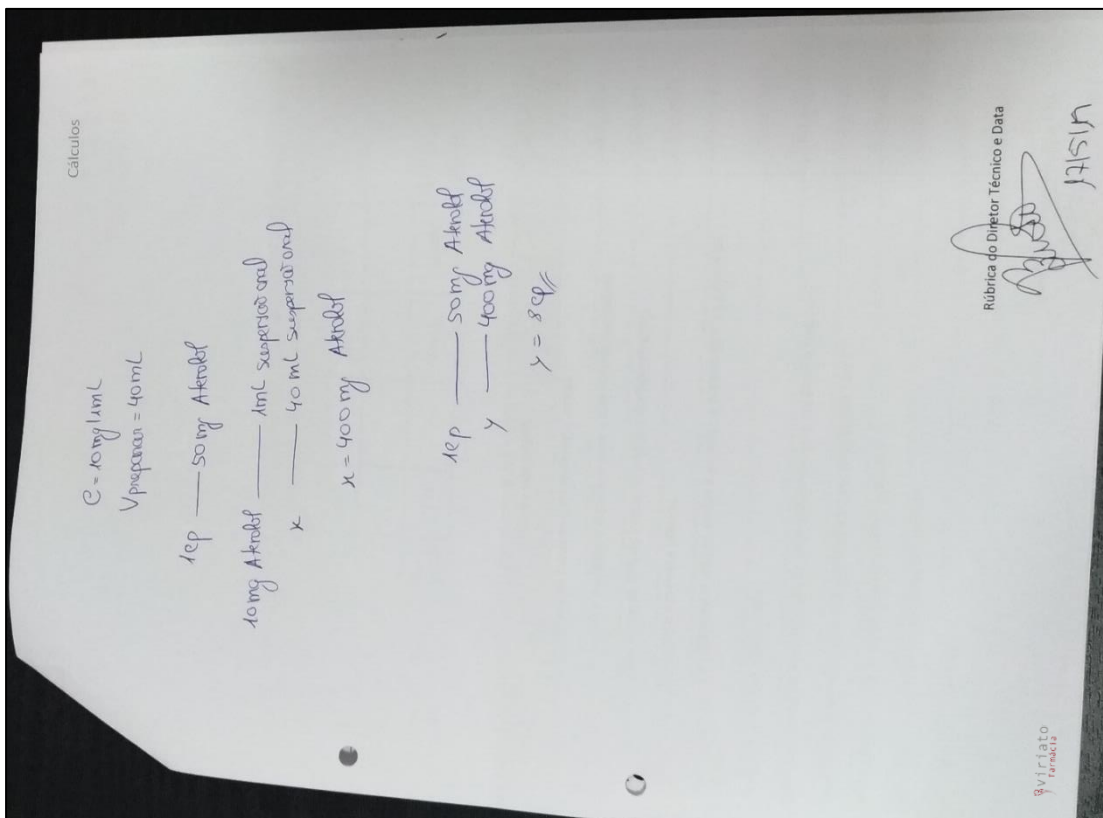 Cálculos
C = 10mg/1mL
Vpreparar = 40mL
1cp — 50mg Atenolol
10mg Atenolol — 1mL suspensão oral
x — 40mL suspensão oral
x = 400mg Atenolol
1cp — 50mg Atenolol
y — 400mg Atenolol
y = 8cp//
Rúbrica do Diretor Técnico e Data
viriato
Farmácia